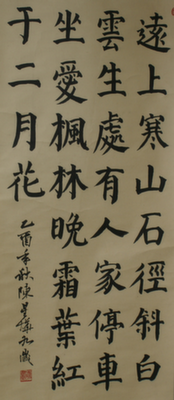 遠上寒山石徑斜白
雲生處有人家停車
坐愛楓林晚霜葉紅
于二月花
乙酉年秋陳